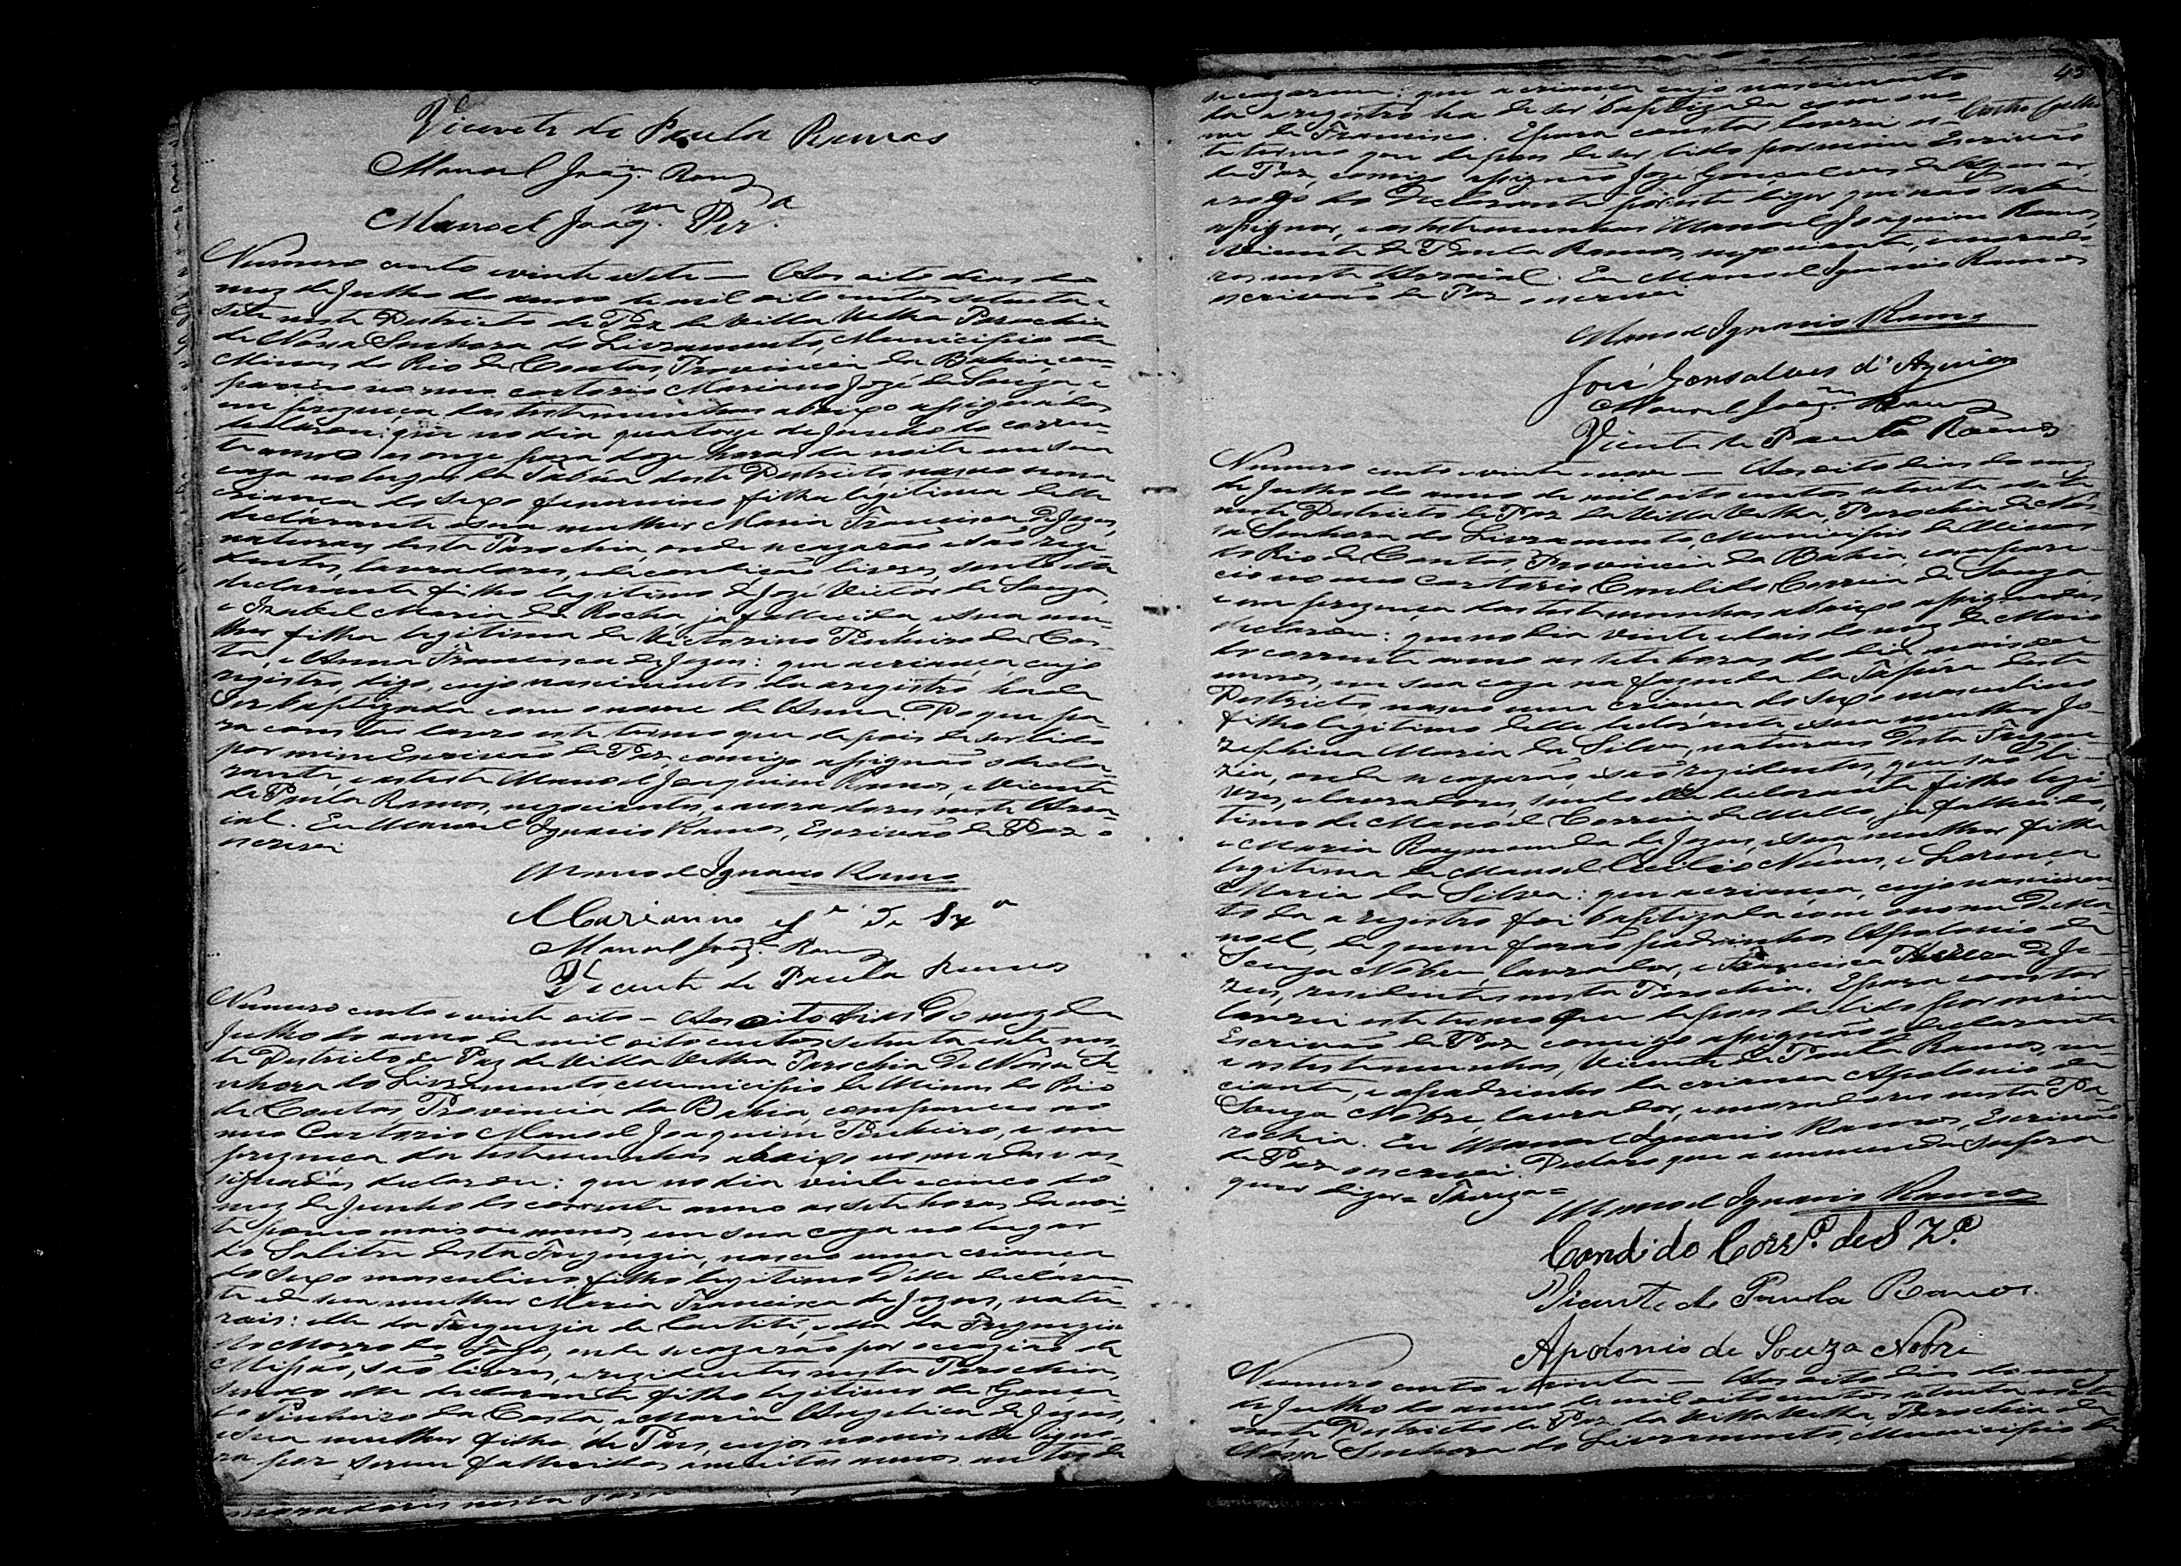 Vicente de Paula Ramos
Manoel Joaqm. Ramos
Manoel Joaqm. Pra.
Numero cento e vinte e sete — Aos oito dias do
mez de Julho do anno de mil oito centos setenta e
sete neste Destricto de Paz da Villa Velha Parochia
de Nossa Senhora do Livramento, Municipio de
Minas do Rio de Contas, Provincia da Bahia, com-
pareceo no meo cartorio Marianno Jozé de Souza, e
em prezença das testemunhas abaixo assignadas
declarou: que no dia quatorze de Junho do corren-
te anno as onze para doze horas da noite em sua
caza no lugar da Tabua deste Destricto, nasceo uma
criança do sexo femenino filha legitima delle
declarante e sua mulher Maria Francisca de Jezus,
naturaes desta Parochia, onde se cazarão e são rezi-
dentes, lavradores, e de condição livres, sendo elle
declarante filho legitimo de Joze Victor de Souza,
e Izabel Maria da Rocha, ja fallecida, e sua mu-
lher filha legitima de Victorino Pinheiro da Cos-
ta, e Anna Francisca de Jezus: que a criança, cujo
registro, digo, cujo nascimento da a registro hade
ser baptizada com o nome de Anna. Do que pa-
ra constar lavro este termo que depois de ser lido
por mim Escrivão de Paz, comigo assignão o decla-
rante, e as testas. Manoel Joaquim Ramos, e Vicente
de Paula Ramos, negociantes, e moradores neste Arra-
ial. Eu Manoel Ignacio Ramos, Escrivão de Paz o
escrevi
Manoel Ignacio Ramos
Marianno Je. de Sza
Manoel Joaqm. Ramos
Vicente de Paula Ramos
Numero cento e vinte oito — Aos oito dias do mez de
Julho do anno de mil oito centos setenta e sete nes-
te Destricto de Paz da Villa Velha Parochia de Nossa Se-
nhora do Livramento, Municipio de Minas do Rio
de Contas, Provincia da Bahia, compareceo no
meo Cartorio Manoel Joaquim Pinheiro, e em
prezença das testemunhas abaixo nomeadas e as-
signadas, declarou: que no dia vinte e cinco do
mez de Junho do corrente anno as sete horas da noi-
te pouco mais ou menos, em sua caza no lugar
do Salitre desta Freguezia, nasceo uma criança
do sexo masculino filho legitimo delle declaran-
te e de sua mulher Maria Francisca de Jezus, natu-
raes: elle da Freguezia de Caetité, e ella da Freguezia
do Morro do Fogo, onde se cazarão por occazião de
Missão, são livres, e rezidentes nesta Parochia,
sendo elle declarante filho legitimo de
Pinheiro da Costa, e Maria Angelica de Jezus,
e sua mulher filha de Pais, cujos nomes elle igno-
ra por serem fallecidos muitos annos antes de
se cazarem: que a criança cujo nascimento
da a registro ha de ser baptizada com o no-
me de Francisco. E para constar lavrei es-
te termo que depois de ser lido por mim Escrivão
de Paz, comigo assignão Joze Gonçalves de Aguiar
a rogo do declarante por este dizer que não sabe
assignar, e as testemunhas Manoel Joaquim Ramos,
Vicente de Paula Ramos, negociantes, e morado-
res neste Arraial. Eu Manoel Ignacio Ramos
escrivão de Paz escrevi
Manoel Ignacio Ramos
José Gonsalves d'Aguiar
Manoel Joaqm. Ramos
Vicente de Paula Ramos
Numero cento e vinte nove — Aos oito dias do mez
de Julho do anno de mil oito centos setenta e sete
neste Destricto de Paz da Villa Velha, Parochia de Nos-
sa Senhora do Livramento, Municipio de Minas
do Rio de Contas, Provincia da Bahia, compare-
ceo no meo cartorio Candido Correia de Souza
e em prezença das testemunhas abaixo assignadas
declarou: que no dia vinte e dois do mez de Maio
do corrente anno as sete horas do dia mais ou
menos, em sua caza na fazenda da Tapera deste
Destricto, nasceo uma criança do sexo masculino
filho legitimo delle declarante e sua mulher Jo-
zephina Maria da Silva, naturaes desta Fregue-
zia, onde se cazarão, e são rezidentes, que são li-
vres, e lavradores, sendo elle declarante filho legi-
timo de Manoel Correia de Mello, ja fallecido,
e Maria Raymunda de Jezus, e sua mulher filha
legitima de Manoel Cecilio Nunes, e Lourença
Maria da Silva: que a criança, cujo nascimen-
to da a registro foi baptizada com o nome de Ma-
noel, de quem forão padrinhos Apolonio de
Souza Nobre, lavrador, e Francisca Thereza de Je-
zus, rezidentes nesta Parochia. E para constar
lavrei este termo que depois de lido por mim
Escrivão de Paz comigo assignão o declarante
e as testemunhas, Vicente de Paula Ramos, ne-
ciante, e o padrinho da criança Apolonio de
Souza Nobre, lavrador, e moradores nesta Pa-
rochia. Eu Manoel Ignacio Ramos, Escrivão
de Paz o escrevi. Declaro que a emmenda supra
quer dizer = Thereza =
Manoel Ignacio Ramos
Candido Corra. de Sza.
Vicente de Paula Ramos.
Apolonio de Souza Nobre
Numero cento e trinta — Aos oito dias do mez
de Julho do anno de mil oito centos setenta e sete
neste Destricto de Paz da Villa Velha, Parochia de
Nossa Senhora do Livramento, Municipio de